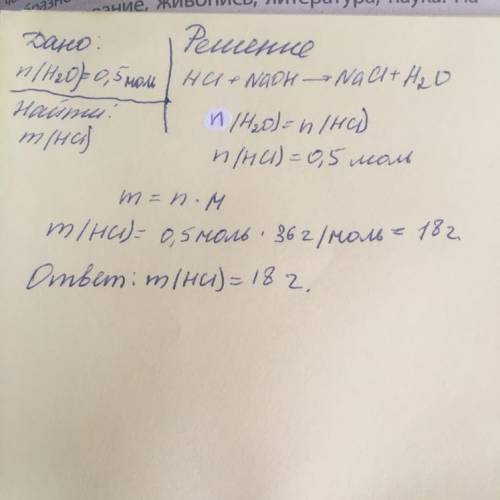 бразно
вание, живопись, литература, наука. На
Дано:
n(H₂O)=0,5 моль
Найти:
m(HCl)
Решение
HCl + NaOH → NaCl + H₂O
n(H₂O) = n(HCl)
n(HCl) = 0,5 моль
m = n · M
m(HCl) = 0,5 моль · 36 г/моль = 18 г.
Ответ: m(HCl) = 18 г.